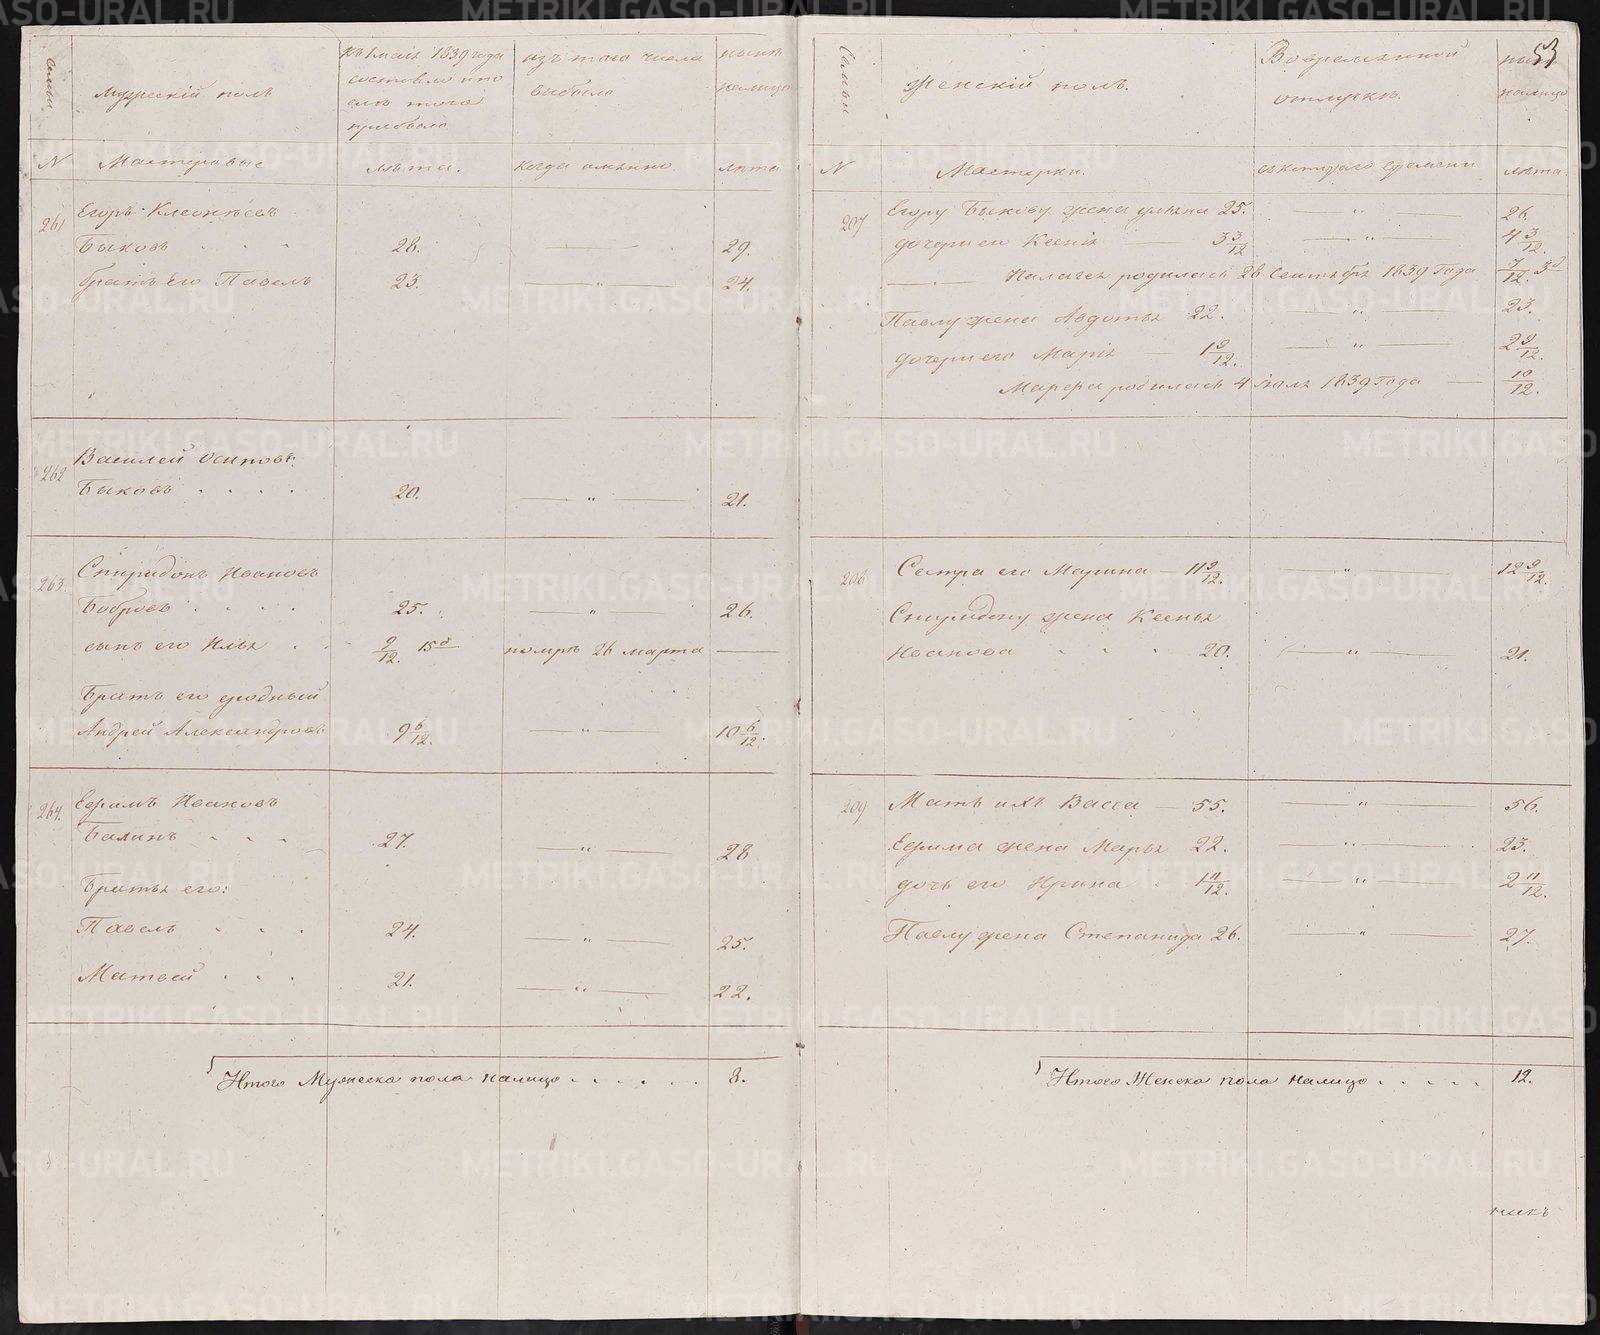 семьи
Мужескій полъ
Къ 1 маія 1839 года
состояло и по
слѣ того
прибыло
изъ того числа
выбыло
нынѣ
налицо
N
Мастеровые
лѣта.
когда имѣнно.
лѣта
261
Егоръ Клеонтьевъ
Быковъ . . . 28. — " — 29.
братъ его Павелъ 23. — " — 24.
262
Василей Осиповъ
Быковъ . . . . 20. — " — 21.
263.
Спиридонъ Ивановъ
Бобровъ . . . . 25. — " — 26.
сынъ его Илья . . 9/12. 15д помръ 26 марта —
Братъ его родный
Андрей Александровъ 9 6/12. — " — 10 6/12.
264.
Ефимъ Ивановъ
Балинъ . . . 27. — " — 28
Братья его:
Павелъ . . . 24. — " — 25.
Матвей . . . 21. — " — 22.
Итого Мужеска пола налицо . . . . . . 8.
53
Семьи
Женскій полъ.
Вовременной
отлучкѣ.
налицо
N
Мастерки.
съ котораго времени
лѣта.
207
Егору Быкову жена Ульяна 25. — " — 26.
дочери его Ксенія — 3 3/12 — " — 4 3/12.
— " — Палагея родилась 26 Сентября 1839 Года 7/12. 3д
Павлу жена Авдотья 22. — " — 23.
дочери его Марія — 1 9/12. — " — 2 9/12.
Марфа родилась 4 Іюля 1839 Года — 10/12.
208
Сестра его Марина — 11 9/12. — " — 12 9/12.
Спиридону жена Ксенья
Иванова . . . 20. — " — 21.
209
Мать ихъ Васса — 55. — " — 56.
Ефима жена Марья 22. — " — 23.
дочь его Ирина . 1 11/12. — " — 2 11/12.
Павлу жена Степанида 26. — " — 27.
Итого Женска пола налицо . . . . . 12.
METRIKI.GASO-URAL.RU